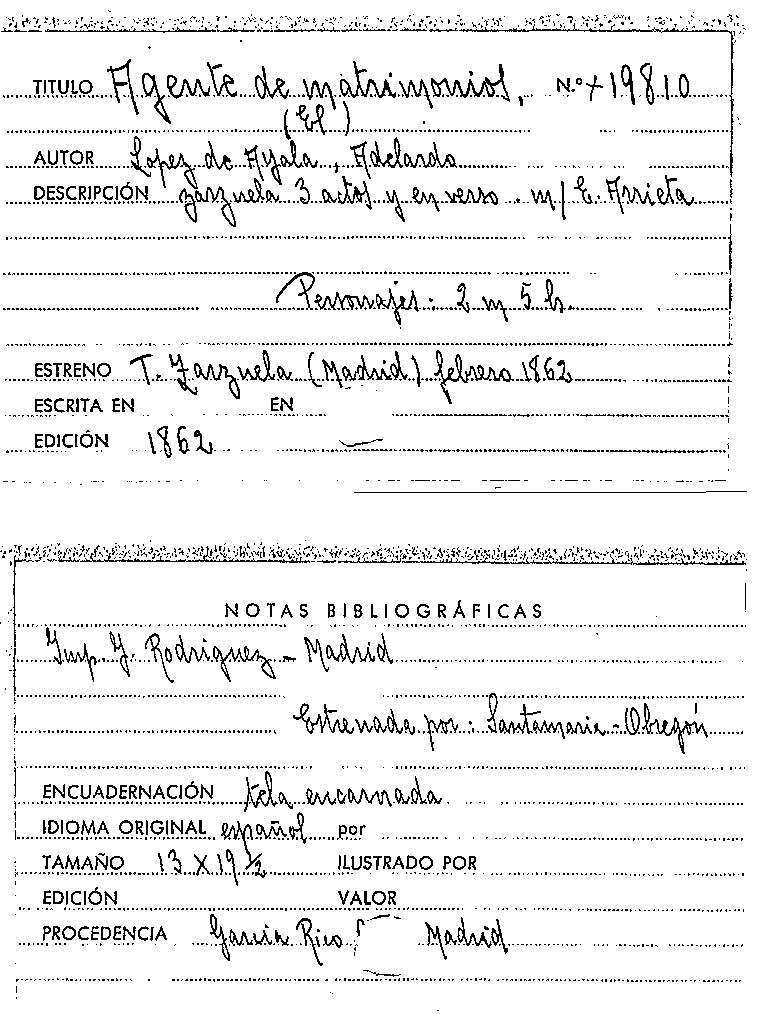 TITULO Agente de matrimonios, N.º + 19810
(El)
AUTOR Lopez de Ayala, Adelardo
DESCRIPCIÓN zarzuela 3 actos y en verso. m/ E. Arrieta
Personajes: 2 m 5 h.
ESTRENO T. Zarzuela (Madrid) febrero 1862
ESCRITA EN EN
EDICIÓN 1862
NOTAS BIBLIOGRÁFICAS
Imp. J. Rodriguez - Madrid
Estrenada por: Santamaria - Obregón
ENCUADERNACIÓN tela encarnada
IDIOMA ORIGINAL español por
TAMAÑO 13 X 19 ½ ILUSTRADO POR
EDICIÓN VALOR
PROCEDENCIA Garcia Rico Madrid